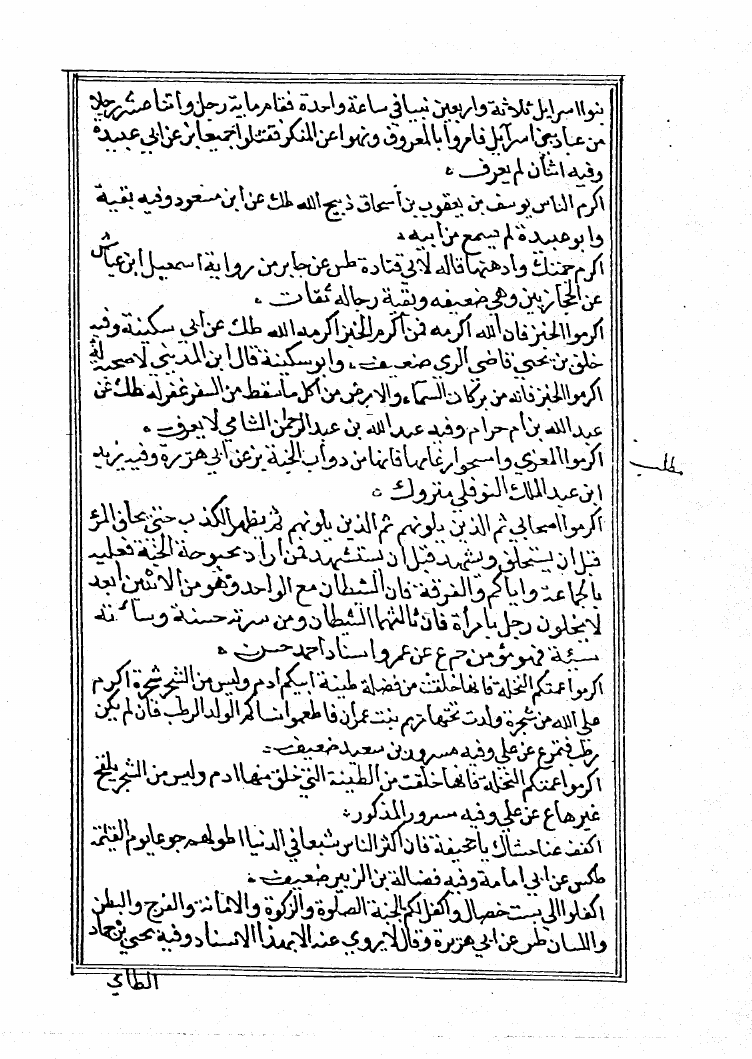 بنوا اسرايل ثلاثة واربعين نبيا في ساعة واحدة فقام ماية رجل واثنا عشر رجلا
من عباد بني اسرايل فامروا بالمعروف ونهوا عن المنكر فقتلوا جميعا بز عن ابي عبيدة
وفيه اثنان لم يعرف ۰
اكرم الناس يوسف بن يعقوب بن اسحاق ذبيح الله طك عن ابن مسعود وفيه بقية
وابو عبيدة لم يسمع من ابيه ۰
اكرم جمتك وادهنها قاله لابي قتادة طس عن جابر من رواية اسمعيل ابن عياش
عن الحجازيين وهي ضعيفه وبقية رجاله ثقات ۰
اكرموا الخبز فان الله اكرمه فمن اكرم الخبز اكرمه الله طك عن ابي سكينة وفيه
خلف بن يحيى قاضي الري ضعيف ۰ وابو سكينة قال ابن المديني لا صحبة له
اكرموا الخبز فانه من بركات السماء والارض من اكل ما سقط من السفر غفر له طك عن
عبد الله بن ام حرام وفيه عبد الله بن عبد الرحمن الشامي لا يعرف ۰
اكرموا المعزي وامسحوا رغامها فانها من دواب الجنة بز عن ابي هريرة وفيه يزيد
ابن عبد الملك النوفلي متروك ۰
مطلب
اكرموا اصحابي ثم الذين يلونهم ثم الذين يلونهم ثم يظهر الكذب حتى يحلف المرء
قبل ان يستحلف ويشهد قبل ان يستشهد فمن اراد بحبوحة الجنة فعليه
بالجماعة واياكم والفرقة فان الشيطان مع الواحد وهو من الاثنين ابعد
لا يخلون رجل بامرأة فان ثالثهما الشيطان ومن سرته حسنة وسائته
سيئة فهو مؤمن حم ع عن عمر واسناد احمد حسن ۰
اكرموا عمتكم النخلة فانها خلقت من فضلة طينة ابيكم ادم وليس من الشجر شجرة اكرم
على الله من شجرة ولدت تحتها مريم بنت عمران فاطعموا نساكم الولد الرطب فان لم يكن
رطب فتمر ع عن علي وفيه مسرور بن سعيد ضعيف ۰
اكرموا عمتكم النخلة فانها خلقت من الطينة التي خلق منها ادم وليس من الشجر يلقح
غيرها ع عن علي وفيه مسرور المذكور ۰
اكفف عنا جشاك يا باجحيفة فان اكثر الناس شبعا في الدنيا اطولهم جوعا يوم القيامة
طكس عن ابي امامة وفيه فضالة بن الزبير ضعيف ۰
اكفلوا لي بست خصال واكفل لكم الجنة الصلوة والزكوة والامانة والفرج والبطن
واللسان طس عن ابي هريرة وقال لا يروي عنه الا بهذا الاسناد وفيه يحيى بن حماد
الطاي